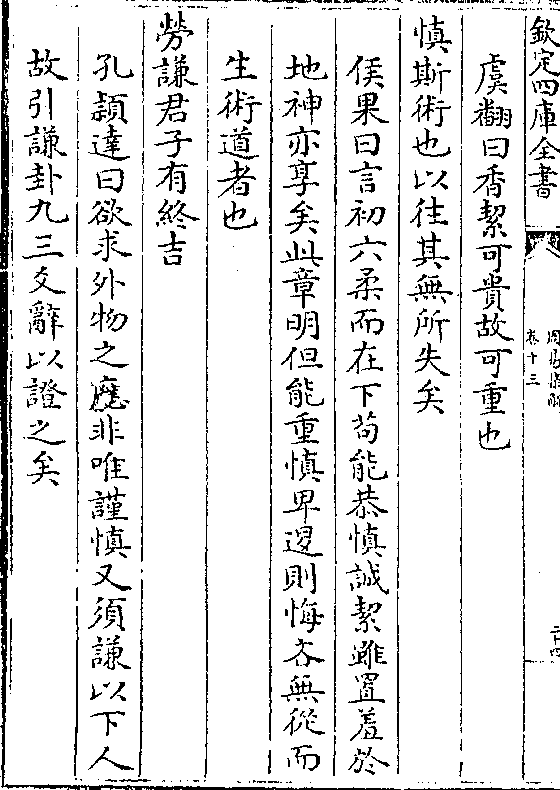 欽定四庫全書
卷十三
虞翻曰香絜可貴故可重也
慎斯術也以往其無所失矣
侯果曰言初六柔而在下苟能恭慎誠絜雖置羞於
地神亦享矣此章明但能重慎卑退則悔吝無從而
生術道者也
勞謙君子有終吉
孔穎達曰欲求外物之應非唯謹慎又須謙以下人
故引謙卦九三爻辭以證之矣